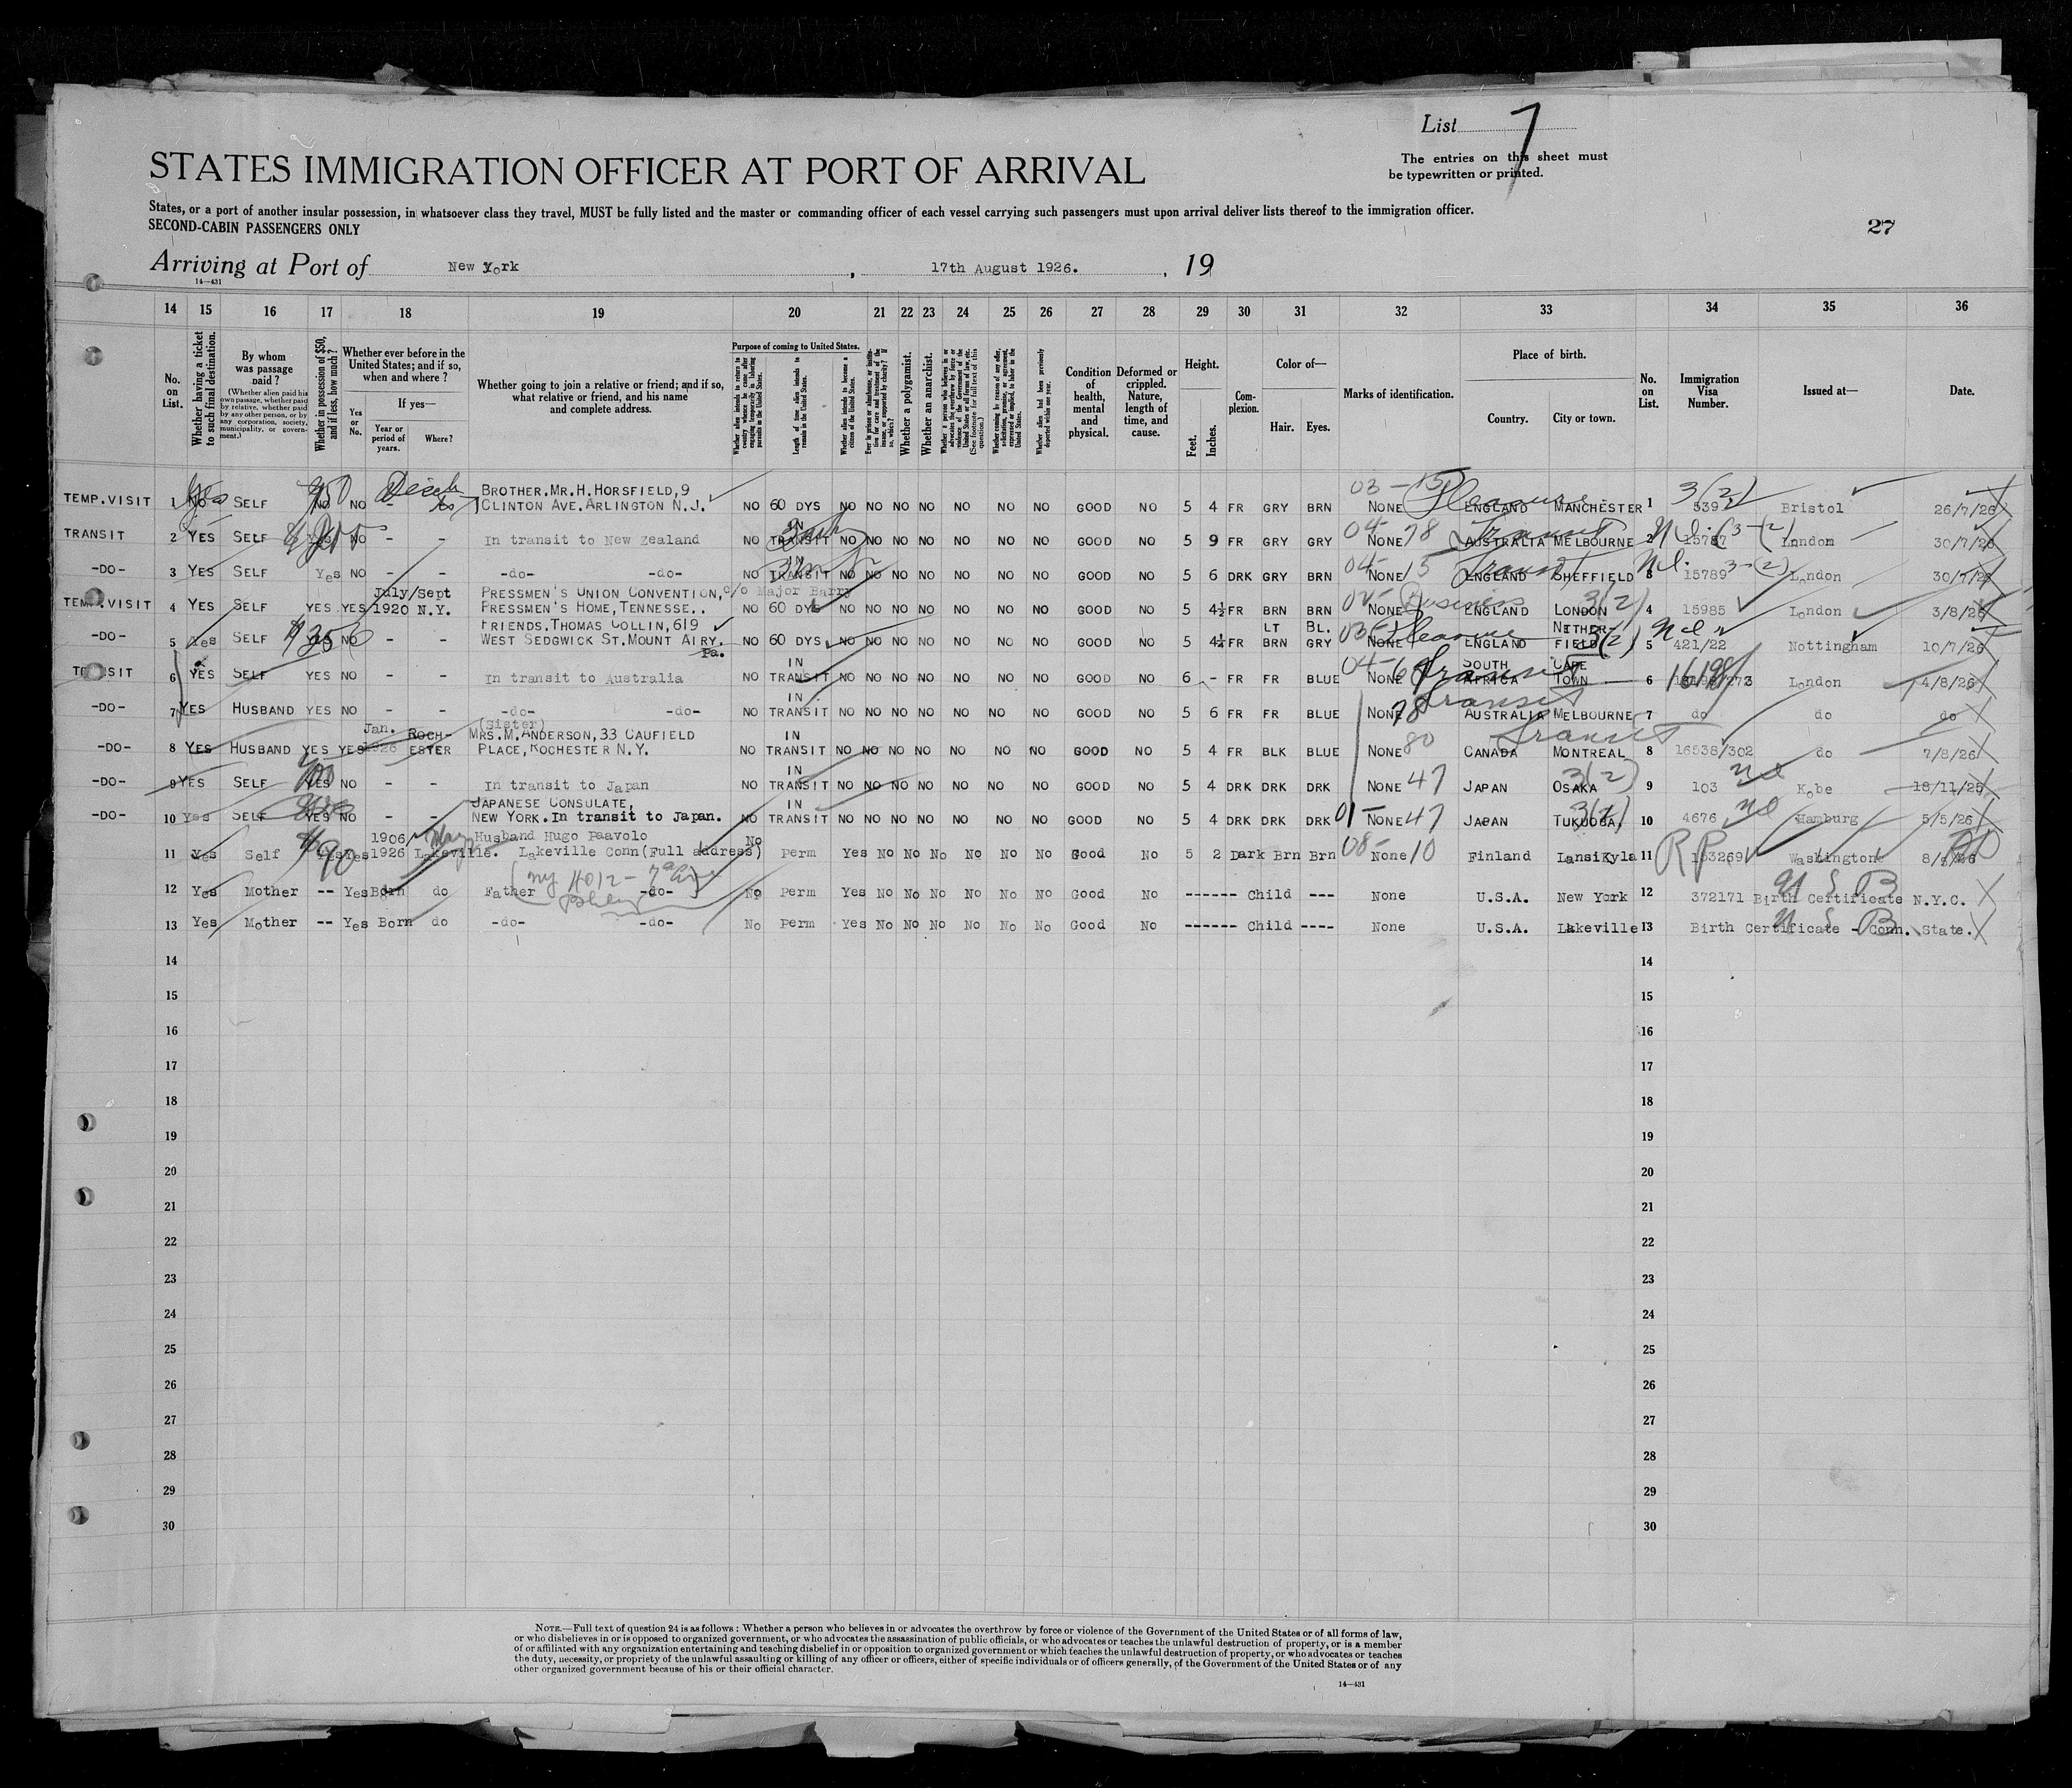 List 7
The entries on this sheet must
be typewritten or printed.
STATES IMMIGRATION OFFICER AT PORT OF ARRIVAL
States, or a port of another insular possession, in whatsoever class they travel, MUST be fully listed and the master or commanding officer of each vessel carrying such passengers must upon arrival deliver lists thereof to the immigration officer.
SECOND-CABIN PASSENGERS ONLY
27
Arriving at Port of New York, 17th August 1926. , 19
14—431
14 15 16 17 18 19 20 21 22 23 24 25 26 27 28 29 30 31 32 33 34 35 36
No. on List.
Whether having a ticket to such final destination.
By whom was passage paid?
(Whether alien paid his own passage, whether paid by relative, whether paid by any other person, or by any corporation, society, municipality, or government.)
Whether in possession of $50, and if less, how much?
Whether ever before in the United States; and if so, when and where?
Yes or No.
If yes—
Year or period of years.
Where?
Whether going to join a relative or friend; and if so, what relative or friend, and his name and complete address.
Purpose of coming to United States.
Whether alien intends to return to country whence he came after engaging temporarily in laboring pursuits in the United States.
Length of time alien intends to remain in the United States.
Whether alien intends to become a citizen of the United States.
Ever in prison or almshouse, or institution for care and treatment of the insane, or supported by charity? If so, which?
Whether a polygamist.
Whether an anarchist.
Whether a person who believes in or advocates the overthrow by force or violence of the Government of the United States or all forms of law, etc. (See footnote for full text of this question.)
Whether coming by reason of any offer, solicitation, promise, or agreement, expressed or implied, to labor in the United States.
Whether alien had been previously deported within one year.
Condition of health, mental and physical.
Deformed or crippled. Nature, length of time, and cause.
Height.
Feet. Inches.
Complexion.
Color of—
Hair. Eyes.
Marks of identification.
Place of birth.
Country. City or town.
No. on List.
Immigration Visa Number.
Issued at—
Date.
TEMP.VISIT 1 No Yes SELF No $50 NO - BROTHER.MR.H.HORSFIELD,9 CLINTON AVE.ARLINGTON N.J. NO 60 DYS NO NO NO NO NO NO NO GOOD NO 5 4 FR GRY BRN 03-15 NONE Pleasure ENGLAND MANCHESTER 1 539 3(2) Bristol 26/7/26
TRANSIT 2 YES SELF YES NO - - In transit to New Zealand NO IN TRANSIT NO NO NO NO NO NO NO GOOD NO 5 9 FR GRY GRY 04- NONE 78 Transit AUSTRALIA MELBOURNE 2 15787 3-(2) London 30/7/26
-DO- 3 YES SELF Yes NO - - -do- -do- NO IN TRANSIT NO NO NO NO NO NO NO GOOD NO 5 6 DRK GRY BRN 04- NONE 15 Transit ENGLAND SHEFFIELD 3 15789 3-(2) London 30/7/26
TEMP.VISIT 4 YES SELF YES YES July/Sept 1920 N.Y. PRESSMEN'S UNION CONVENTION,c/o Major Barry PRESSMEN'S HOME,TENNESSE.. NO 60 DYS NO NO NO NO NO NO NO GOOD NO 5 4½ FR BRN BRN 02- NONE Business ENGLAND LONDON 3(2) 4 15985 London 3/8/26
-DO- 5 Yes SELF YES NO - - FRIENDS.THOMAS COLLIN,619 WEST SEDGWICK ST.MOUNT AIRY. Pa. NO 60 DYS NO NO NO NO NO NO NO GOOD NO 5 4¼ FR LT BRN BL. GRY NONE Pleasure ENGLAND NETHERFIELD 3(2) 5 421/22 Nottingham 10/7/26
6 YES SELF YES NO - - In transit to Australia NO IN TRANSIT NO NO NO NO NO NO NO GOOD NO 6 - FR FR BLUE 04- NONE Transit SOUTH AFRICA CAPE TOWN 6 London 4/8/26
-DO- 7 YES HUSBAND YES NO - - -do- -do- NO IN TRANSIT NO NO NO NO NO NO NO GOOD NO 5 6 FR FR BLUE NONE 78 Transit AUSTRALIA MELBOURNE 7 do do do
-DO- 8 YES HUSBAND YES YES Jan. 1926 ROCHESTER (Sister) MRS.M.ANDERSON,33 CAUFIELD PLACE,ROCHESTER N.Y. NO IN TRANSIT NO NO NO NO NO NO NO GOOD NO 5 4 FR BLK BLUE NONE 80 Transit CANADA MONTREAL 8 16538/302 do 7/8/26
-DO- 9 YES SELF YES NO - - In transit to Japan NO IN TRANSIT NO NO NO NO NO NO NO GOOD NO 5 4 DRK DRK DRK NONE 47 JAPAN OSAKA 3(2) 9 103 Kobe 18/11/25
-DO- 10 Yes SELF YES NO - - JAPANESE CONSULATE, NEW YORK.In transit to Japan. NO IN TRANSIT NO NO NO NO NO NO NO GOOD NO 5 4 DRK DRK DRK 01- NONE 47 JAPAN TUKUOGA, 3(2) 10 4676 Hamburg 5/5/26
11 Yes Self Yes $90 Yes 1906 1926 Lakeville. Husband Hugo Paavolo Lakeville Conn(Full address) No Perm Yes No No No No No No Good No 5 2 Dark Brn Brn 08- None 10 Finland LansiKyla 11 RP 153269 Washington
12 Yes Mother -- Yes Born do Father -do- No Perm Yes No No No No No No Good No ------ Child --- None U.S.A. New York 12 372171 Birth Certificate N.Y.C. U S B
13 Yes Mother -- Yes Born do -do- -do- No Perm Yes No No No No No No Good No ------ Child ---- None U.S.A. Lakeville 13 Birth Certificate - Conn. State. U S B
14 14
15 15
16 16
17 17
18 18
19 19
20 20
21 21
22 22
23 23
24 24
25 25
26 26
27 27
28 28
29 29
30 30
NOTE.—Full text of question 24 is as follows: Whether a person who believes in or advocates the overthrow by force or violence of the Government of the United States or of all forms of law,
or who disbelieves in or is opposed to organized government, or who advocates the assassination of public officials, or who advocates or teaches the unlawful destruction of property, or is a member
of or affiliated with any organization entertaining and teaching disbelief in or opposition to organized government or which teaches the unlawful destruction of property, or who advocates or teaches
the duty, necessity, or propriety of the unlawful assaulting or killing of any officer or officers, either of specific individuals or of officers generally, of the Government of the United States or of any
other organized government because of his or their official character.
14—431